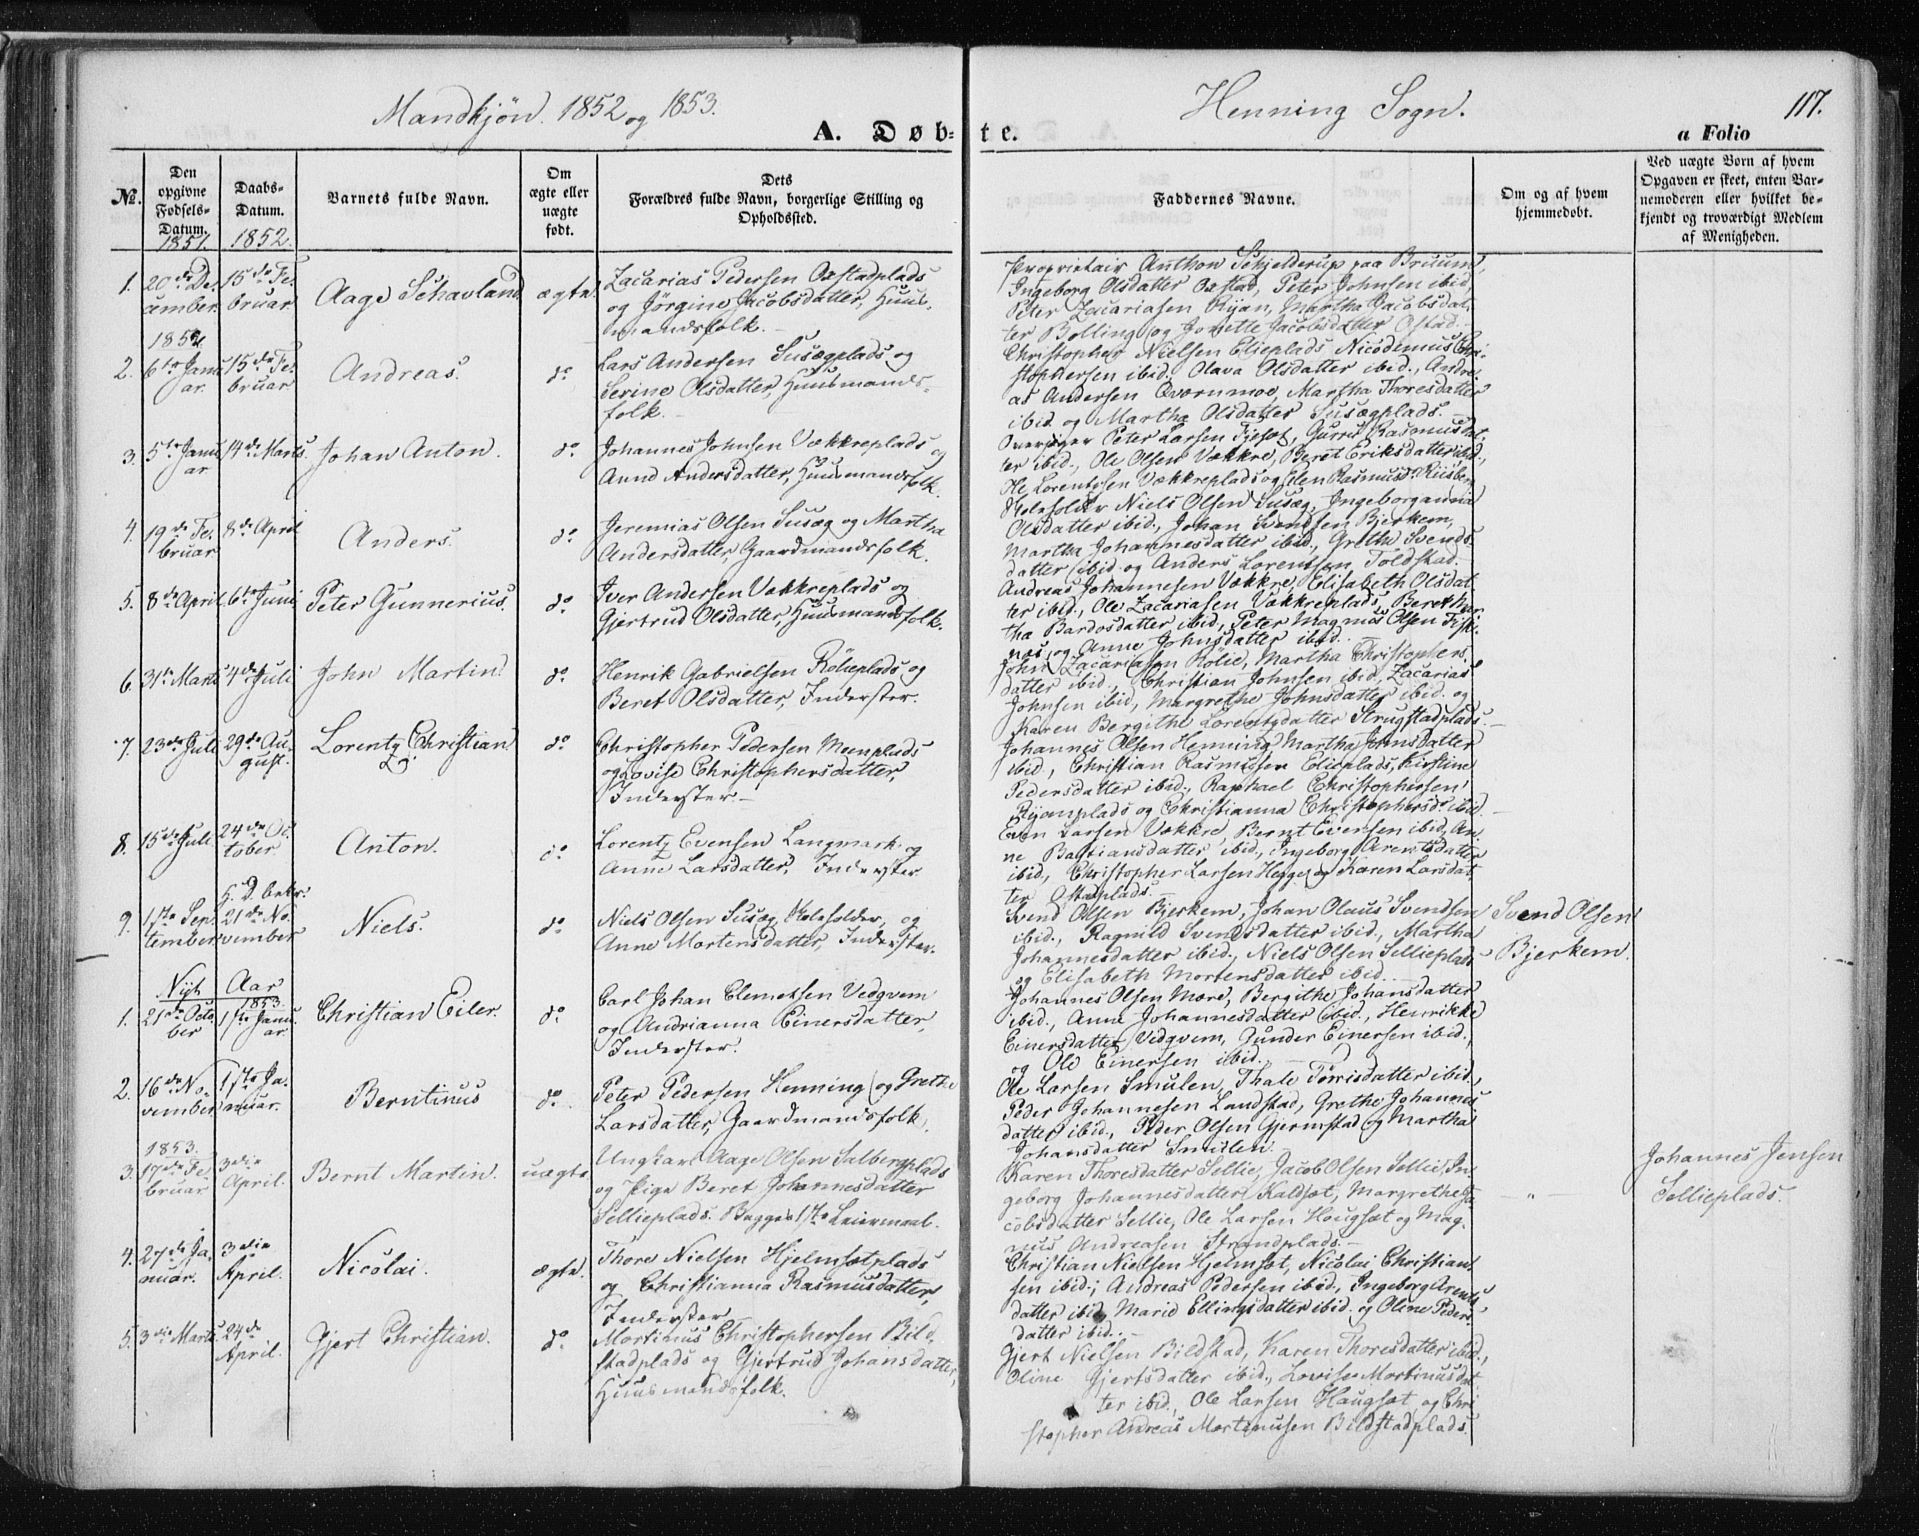 Mandkjøn. 1852 og 1853.
Henning Sogn.
117.
A. Døb-
te.
a Folio
No.
Den opgivne Fødsels-Datum.
1851.
Daabs-Datum.
1852.
Barnets fulde Navn.
Om ægte eller uægte født.
Dets
Forældres fulde Navn, borgerlige Stilling og Opholdssted.
Faddernes Navne.
Om og af hvem hjemmedøbt.
Ved uægte Børn af hvem
Opgaven er skeet, enten Bar-
nemoderen eller hvilket be-
kjendt og troværdigt Medlem
af Menigheden.
1. 20de De-
cember.
15de Fe-
bruar
Aage Schavland
ægte.
Zacarias Pedersen Oxstadplads
og Jørgine Jacobsdatter, Huus-
mandsfolk.
Proprietair Anthon Schjelderup paa Bruum,
Ingeborg Olsdatter Oxstad, Peter Johnsen ibid,
Peter Zacariasen Ryan, Martha Jacobsdat-
ter Bolling og Jonette Jacobsdatter Ostad.
1852.
2. 6te Janu
ar.
15de Fe-
bruar
Andreas.
do
Lars Andersen Susægplads og
Serine Olsdatter, Huusmands-
folk.
Christopher Nielsen Elieplads, Nicodemus Chri-
stophersen ibid. Olava Olsdatter ibid., Andre
as Andersen Qvernmoe, Martha Thoresdatter
ibid og Martha Olsdatter Susægplads.
3. 5te Janu
ar
14de Marts.
Johan Anton.
do
Johannes Johnsen Vækkreplads og
Anne Andersdatter, Huusmandsfolk.
Peter Larsen Tjeset, Gurru Rasmusdat-
ter ibid., Ole Olsen Vækkre, Beret Eriksdatter ibid.,
Lorentzen Vækkreplads og Elen Rasmusd.
4. 19de Fe-
bruar
8de April
Anders.
do
Jeremias Olsen Susæg og Martha
Andersdatter, Gaardmandsfolk.
Niels Olsen Susæg, Ingeboranna
Olsdatter ibid., Johan Svendsen Bjerkem,
Martha Johannesdatter ibid., Grethe Svends-
datter ibid og Anders Lorentsen Foldstad.
5. 8de April
6te Juni
Peter Gunnerius.
do
Iver Andersen Vækkreplads og
Gjertrud Olsdatter, Huusmandsfolk.
Andreas Johannesen Vækkre, Elisabeth Olsdat
ter ibid., Ole Zacariasen Vækkreplads, Beret Mar-
tha Bardosdatter ibid, Peter Magnus Olsen
og Anne Johnsdatter ibid.
6. 31te Marts
4de Juli
John Martin.
do
Henrik Gabrielsen Rølieplads og
Beret Olsdatter, Inderster.
John Zacariasen Rølie, Martha Christophers-
datter ibid., Christian Johnsen ibid, Zacarias
Johnsen ibid, Margrethe Johnsdatter ibid. og
Karen Bergithe Lorentzdatter Strugstadplads.
7. 23de Juli
29de Au-
gust.
Lorentz Christian
do
Christopher Pedersen Moenplads
og Lovise Christophersdatter,
Inderster.
Johannes Olsen Henning, Martha Johnsdatter
ibid, Christian Rasmusen Elieplads, Kirstine
Pedersdatter ibid., Raphael Christophersen
Ryanplads og Christianna Christophersdr ibid.
8. 15de Juli
24de Oc-
tober
Anton.
do
Lorentz Evensen Langmark og
Anne Larsdatter, Inderster
Even Larsen Vækkre, Bernt Evensen ibid, An-
ne Bastiansdatter ibid., Ingeborg Arentsdatter
ibid, Christopher Larsen Hegge og Karen Larsdat
ter Ostadplads.
9. 1ste Sep-
tember
H. D. bekr.
21de No-
vember
Niels.
do
Niels Olsen Susæg, og
Anne Mortensdatter, Inderster.
Svend Olsen Bjerkem, Johan Olaus Svendsen
ibid., Ragnild Svendsdatter ibid., Martha
Johannesdatter ibid., Niels Olsen Sellieplads
og Elisabeth Mortensdatter ibid.
Svend Olsen
Bjerkem.
Nyt Aar
1853.
1. 21de Octo-
ber
1ste Janu-
ar.
Christian Eiler.
do
Carl Johan Clemetsen Vedqvem
og Andrianna Einersdatter,
Inderster.
Johannes Olsen Mære, Bergithe Johansdatter
ibid., Anne Johannesdatter ibid., Henrikke
Einersdatter Vedqvem, Gunder Einersen ibid.,
og Ole Einersen ibid.
2. 16de No-
vember
1ste Ja-
nuar.
Berntinus
do
Peter Pedersen Henning og Grethe
Larsdatter, Gaardmandsfolk.
Ole Larsen Smulen, Thale Tørrisdatter ibid.,
Peder Johannesen Landstad, Grethe Johannes
datter ibid., Peder Olsen Gjermstad og Martha
Johansdatter Smulen.
1853.
3. 17de Fe-
bruar
3die
April.
Bernt Martin.
uægte
Ungkarl Aage Olsen Salbergplads
og Pige Beret Johannesdatter
Sellieplads. Begges 1ste Leiermaal.
Karen Thoresdatter Sellie, Jacob Olsen Sellie, In-
geborg Johannesdatter Kaldset, Margrethe Ja
cobsdatter Sellie, Ole Larsen Hougset og Mag-
nus Andreasen Strandplads.
– „ –
Johannes Jensen
Sellieplads.
4. 27de Ja-
nuar.
3die
April.
Nicolai.
ægte.
Thore Nielsen Hjelmsetplads
og Christianna Rasmusdatter,
Inderster
Christian Nielsen Hjelmset, Nicolai Christian
sen ibid., Andreas Pedersen ibid., Ingeborg Arents
datter ibid, Marie Ellingsdatter ibid. og Oline Peders-
datter ibid.
5. 3die Marts
24de
April.
Gjert Christian.
do
Martinus Christophersen Bild-
stadplads og Gjertrud Johansdatter,
Huusmandsfolk.
Gjert Nielsen Bildstad, Karen Thoresdatter ibid.,
Oline Gjertsdatter ibid., Lovise Martinusdat
ter ibid., Ole Larsen Haugset og Chri
stopher Andreas Martinusen Bildstadplads.